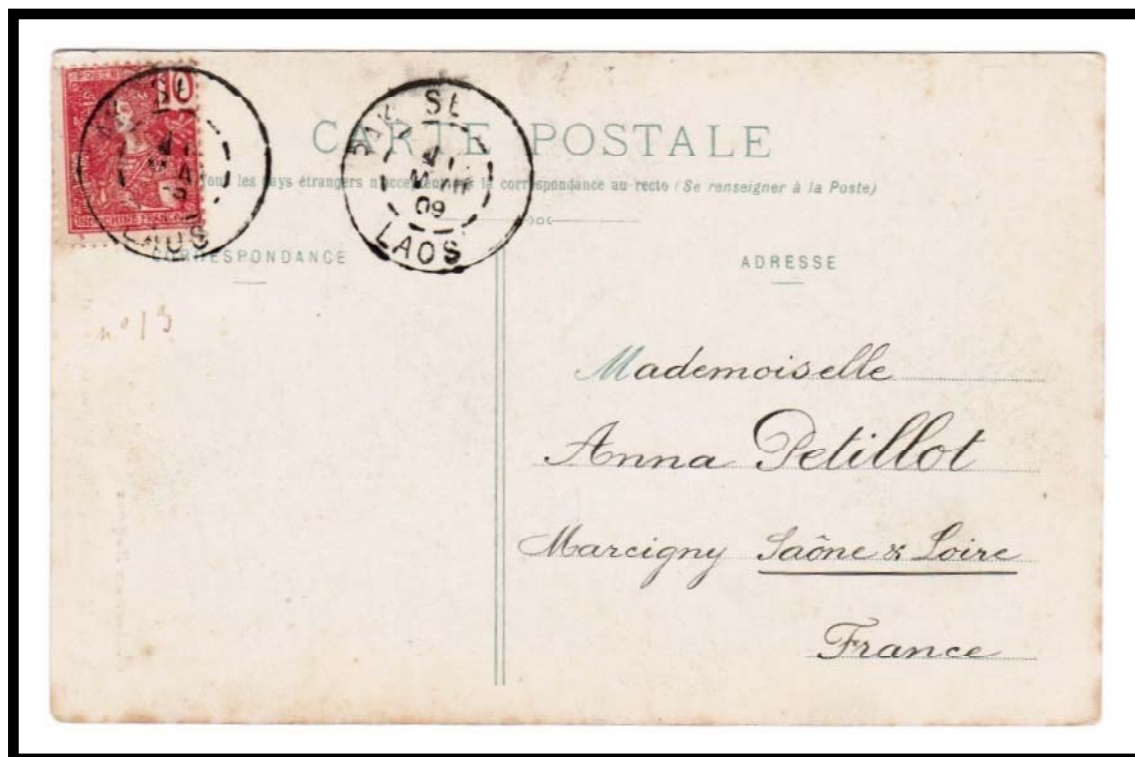 POSTES
10
INDOCHINE FRANÇAISE
PAK SE
LAOS
PAK SE
09
LAOS
CARTE POSTALE
Tous les pays étrangers n'acceptent pas la correspondance au recto (Se renseigner à la Poste)
CORRESPONDANCE
ADRESSE
n° 13
Mademoiselle
Anna Petillot
Marcigny Saône & Loire
France